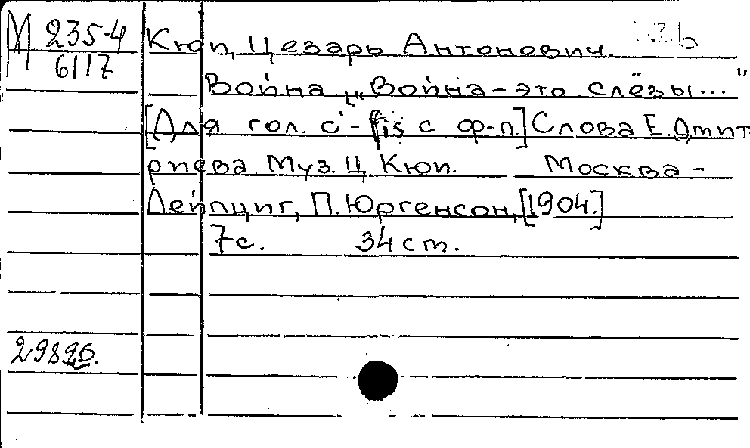 М 235-4
6117
Кюи, Цезарь Антонович.
Война „Война - это слёзы..."
[Для гол. c' - fis с ф-п.] Слова Е. Дмит
риева. Муз. Ц. Кюи. Москва -
Лейпциг, П. Юргенсон, [1904.]
7 с. 34 ст.
29896.